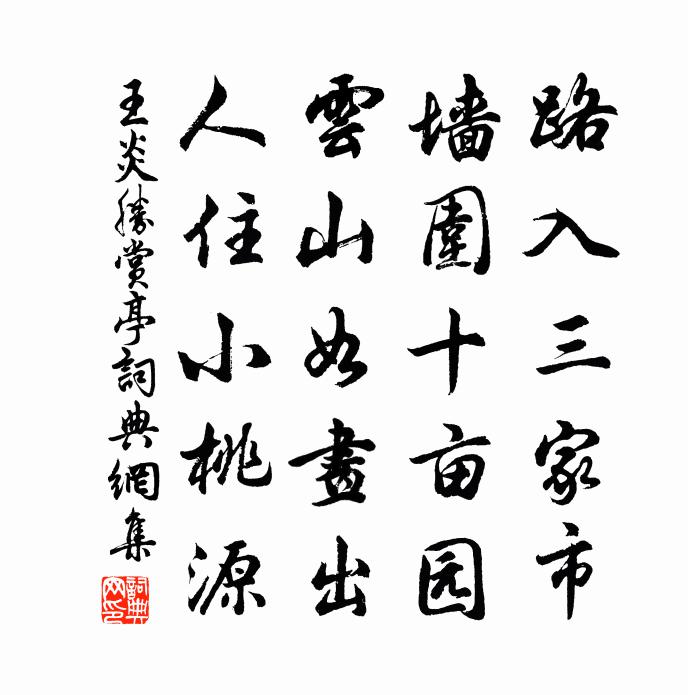 路入三家市
墙圍十亩园
雲山如畫出
人住小桃源
王炎勝賞亭詞典網集
詞典網印